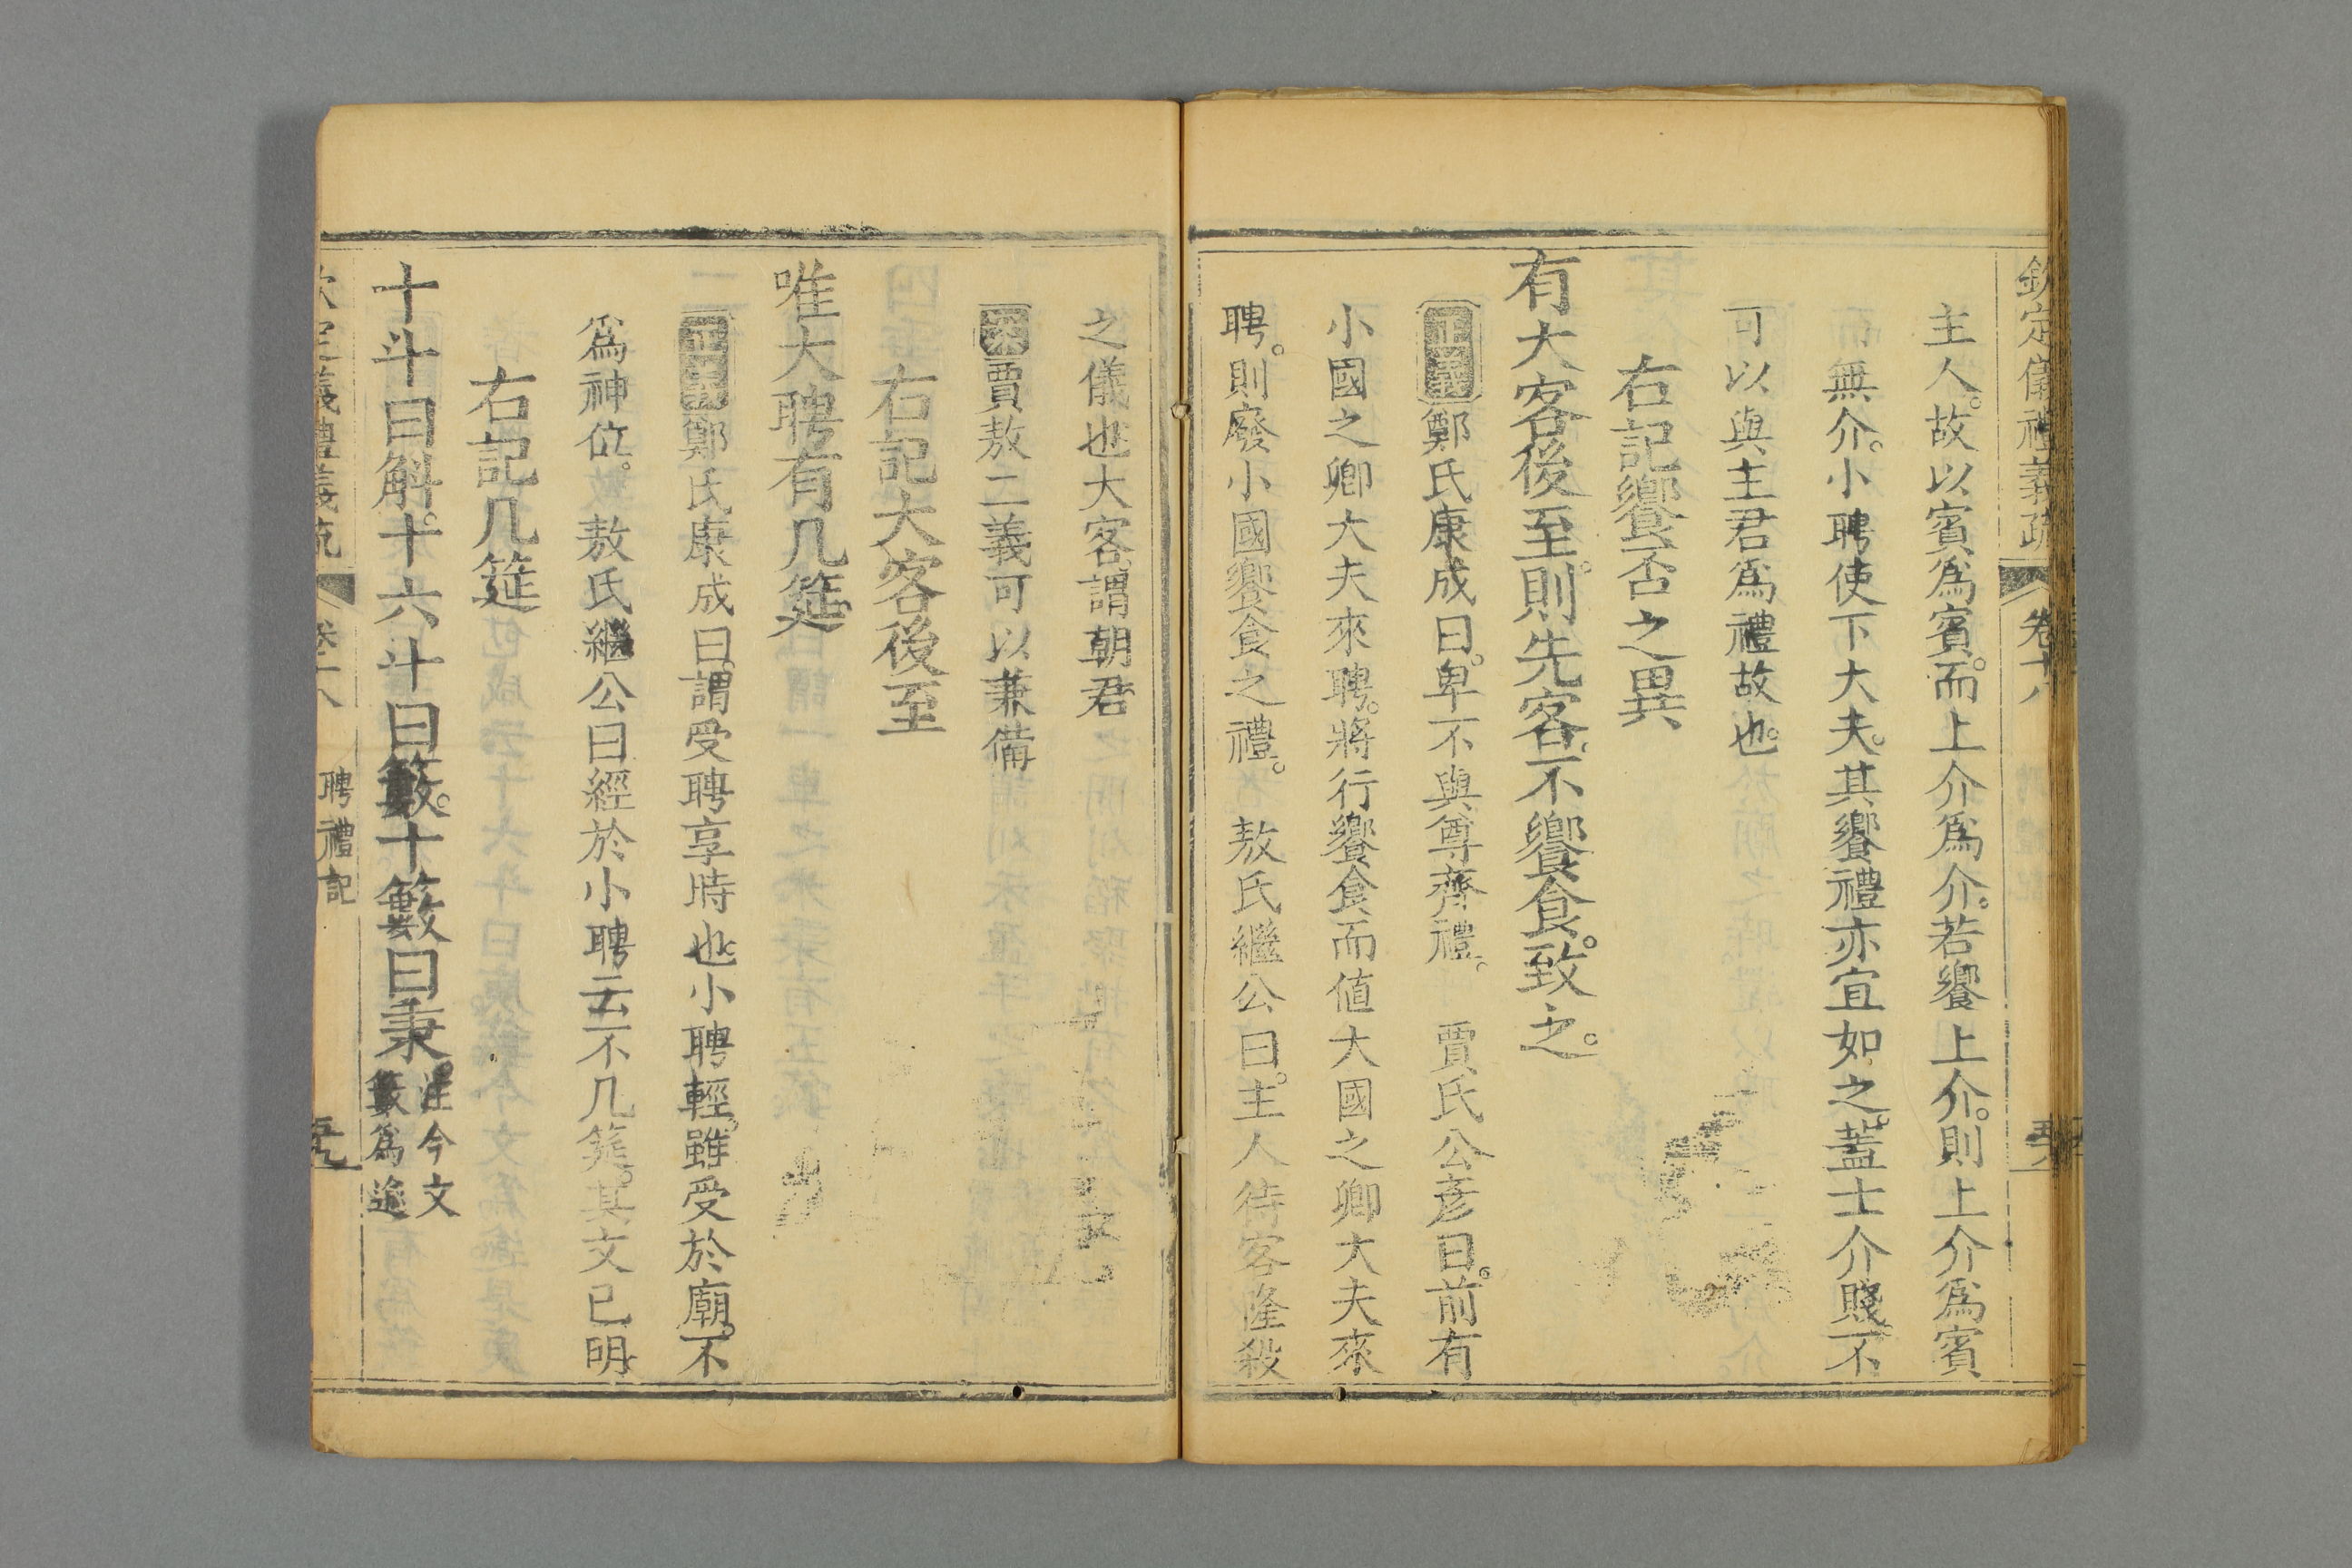 欽定儀禮義疏 卷十八
主人。故以賓爲賓。而上介爲介。若饗上介。則上介爲賓
而無介。小聘使下大夫。其饗禮亦宜如之。蓋士介賤不
可以與主君爲禮故也。
右記饗否之異
有大客後至。則先客不饗食。致之。
正義鄭氏康成曰。卑不與尊齊禮。 賈氏公彥曰。前有
小國之卿大夫來聘。將行饗食而値大國之卿大夫來
聘。則廢小國饗食之禮。 敖氏繼公曰。主人待客隆殺
之儀也大客。謂朝君
案賈敖二義可以兼備
右記大客後至
唯大聘有几筵
正義鄭氏康成曰。謂受聘享時也小聘輕。雖受於廟。不
爲神位。 敖氏繼公曰經於小聘云不几筵。其文已明
右記几筵
十斗曰斛。十六斗曰籔。十籔曰秉。注今文
籔爲逾
欽定儀禮義疏 卷十八 聘禮記